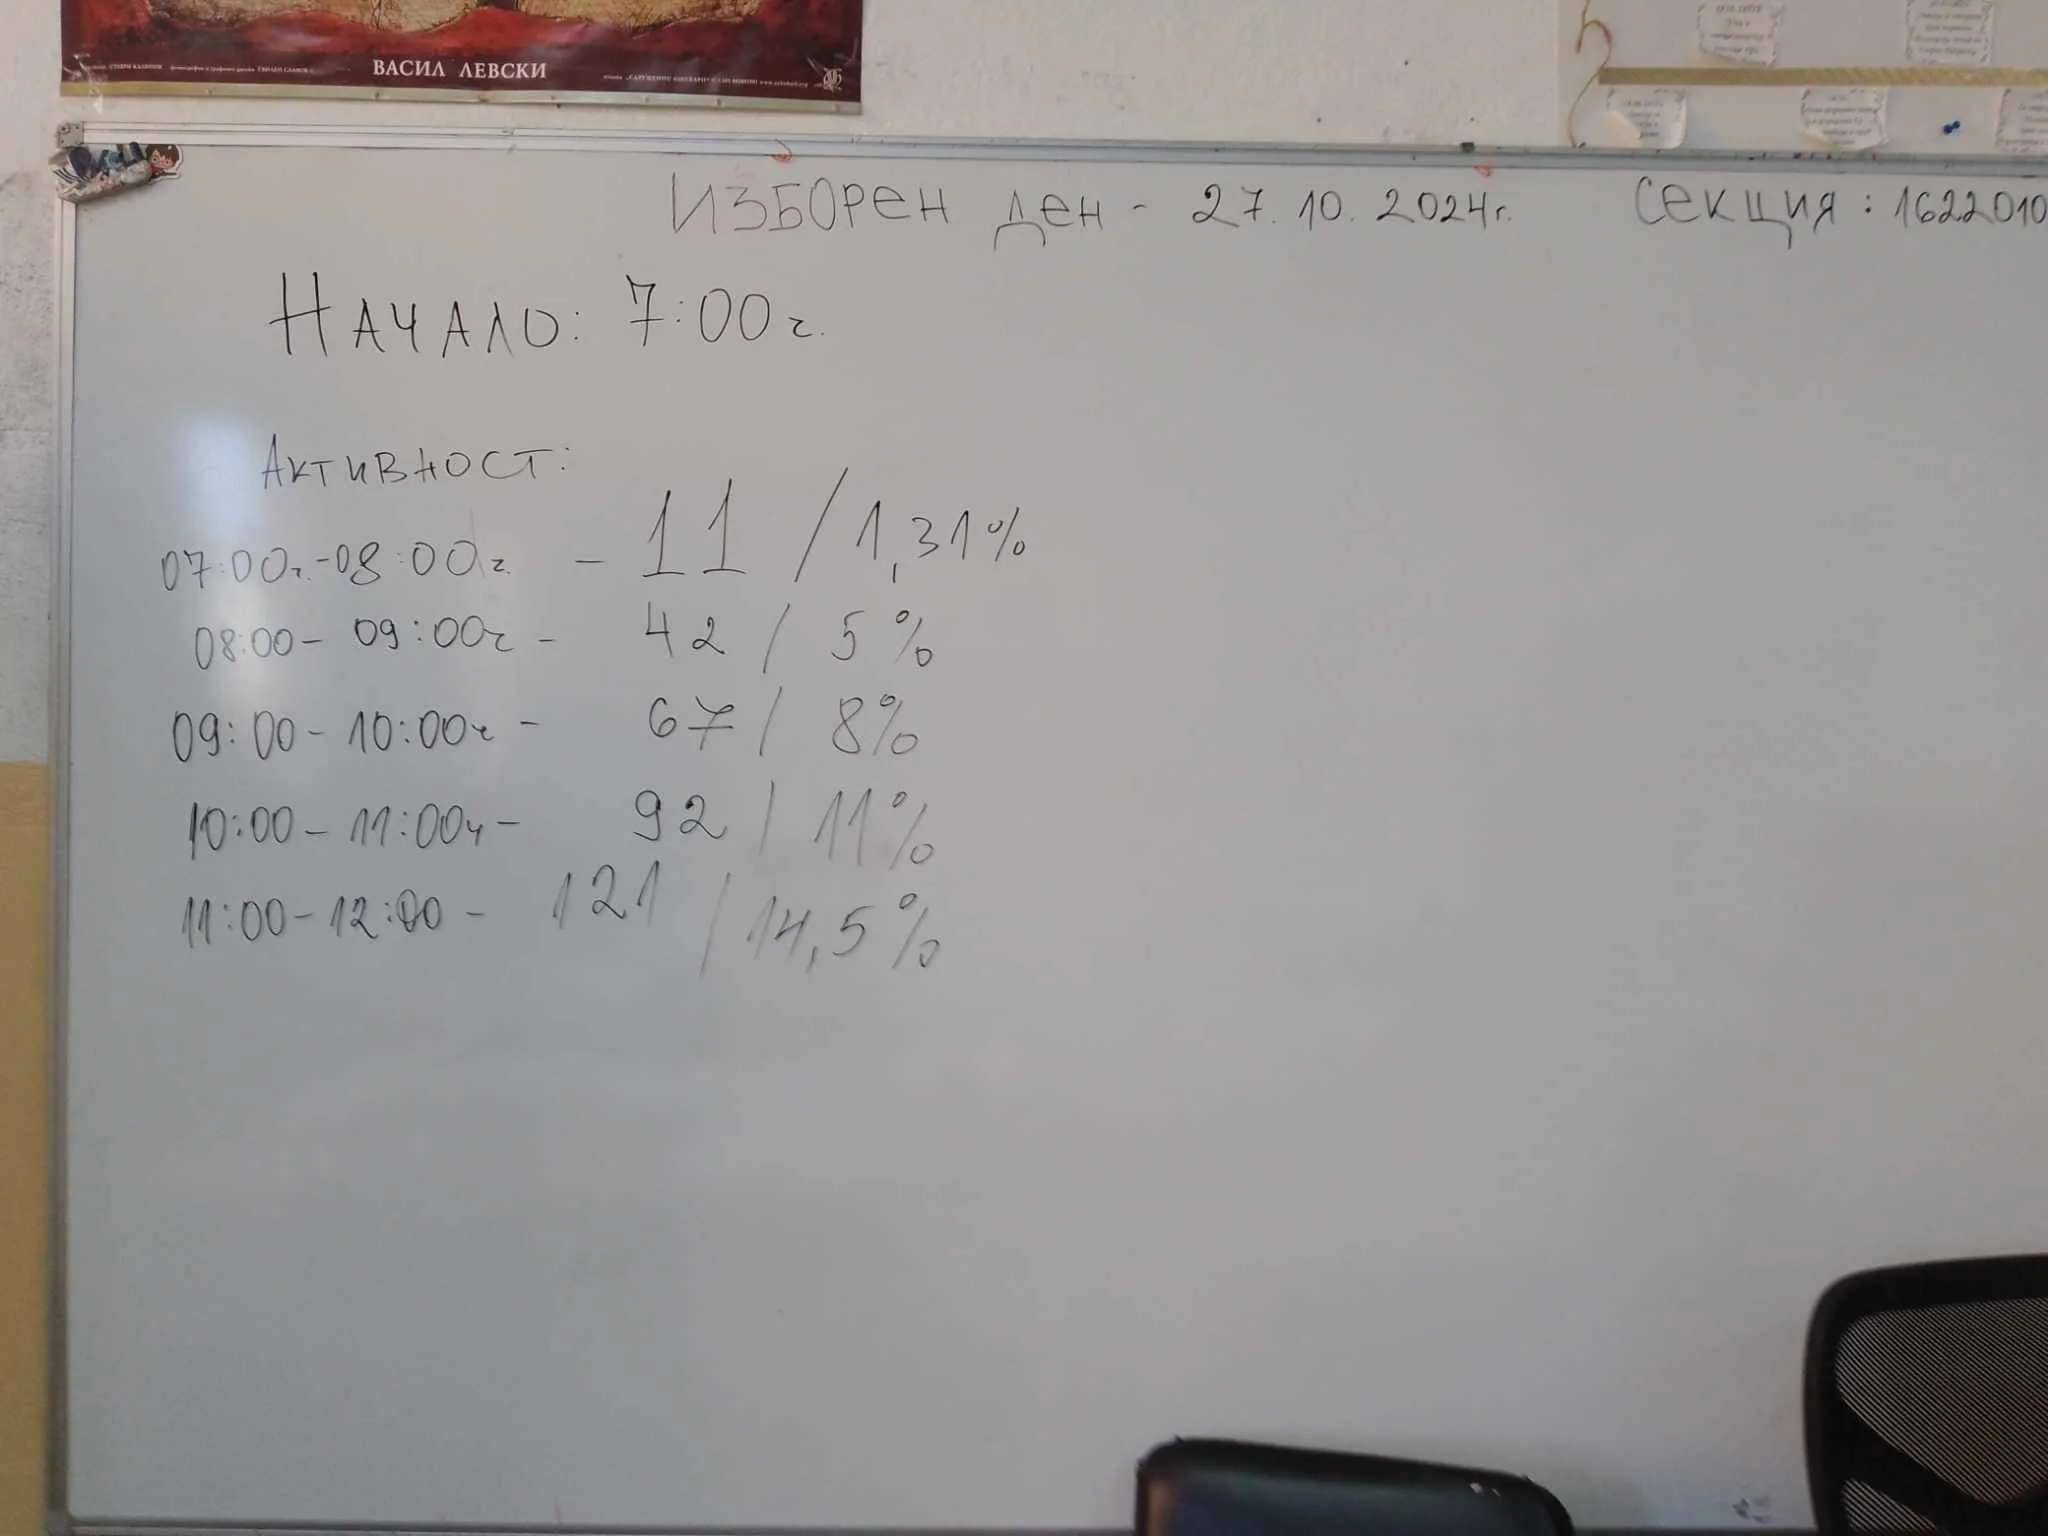 ВАСИЛ ЛЕВСКИ
ИЗБОРЕН ДЕН - 27.10.2024г. СЕКЦИЯ: 1622010
НАЧАЛО: 7:00ч.
АКТИВНОСТ:
07:00ч.-08:00ч. - 11 / 1,31%
08:00- 09:00ч - 42 / 5%
09:00 - 10:00ч - 67 / 8%
10:00 - 11:00ч - 92 / 11%
11:00 - 12:00 - 121 / 14,5%